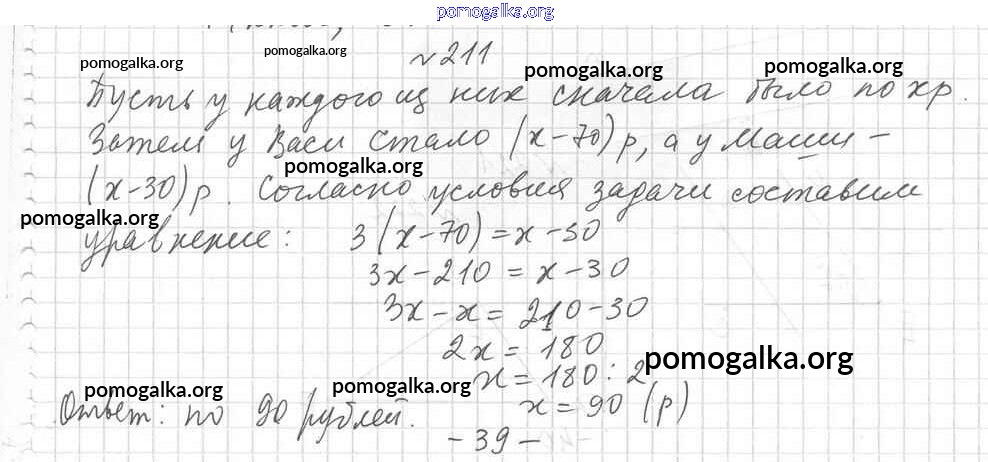 pomogalka.org
pomogalka.org pomogalka.org №211 pomogalka.org pomogalka.org
Пусть у каждого из них сначала было по x р.
Затем у Васи стало (x-70)р, а у Маши -
pomogalka.org
(x-30)р. Согласно условия задачи составим
pomogalka.org
уравнение: 3(x-70)=x-30
3x-210=x-30
3x-x=210-30
2x=180
pomogalka.org
x=180:2
pomogalka.org pomogalka.org
Ответ: по 90 рублей. x=90 (р)
-39-